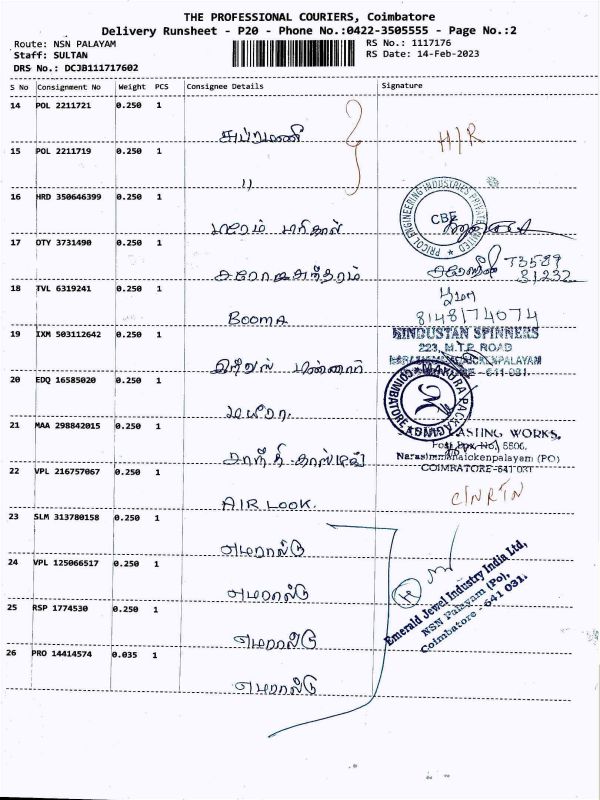 THE PROFESSIONAL COURIERS, Coimbatore
Delivery Runsheet - P20 - Phone No.:0422-3505555 - Page No.:2
Route: NSN PALAYAM
RS No.: 1117176
Staff: SULTAN
RS Date: 14-Feb-2023
DRS No.: DCJB111717602
S No Consignment No Weight PCS Consignee Details Signature
14 POL 2211721 0.250 1
H/R
15 POL 2211719 0.250 1
"
16 HRD 350646399 0.250 1
PRICOL ENGINEERING INDUSTRIES PRIVATE LIMITED
CBE
17 OTY 3731490 0.250 1
T3589
81232
18 TVL 6319241 0.250 1
BOOMA
பூமா
8148174074
19 IXM 503112642 0.250 1
HINDUSTAN SPINNERS
223, M.T.P. ROAD
641 031.
20 EDQ 16585020 0.250 1
மயூரா
COIMBATORE
21 MAA 298842015 0.250 1
CASTING WORKS,
Post Box No. 5506,
Narasimmanaickenpalayam (PO)
COIMBATORE-641 031
22 VPL 216757067 0.250 1
AIR LOOK.
C/NRTN
23 SLM 313780158 0.250 1
எமரால்டு
24 VPL 125066517 0.250 1
எமரால்டு
Emerald Jewel Industry India Ltd,
NSN Palayam (Po),
Coimbatore - 641 031.
25 RSP 1774530 0.250 1
எமரால்டு
26 PRO 14414574 0.035 1
எமரால்டு